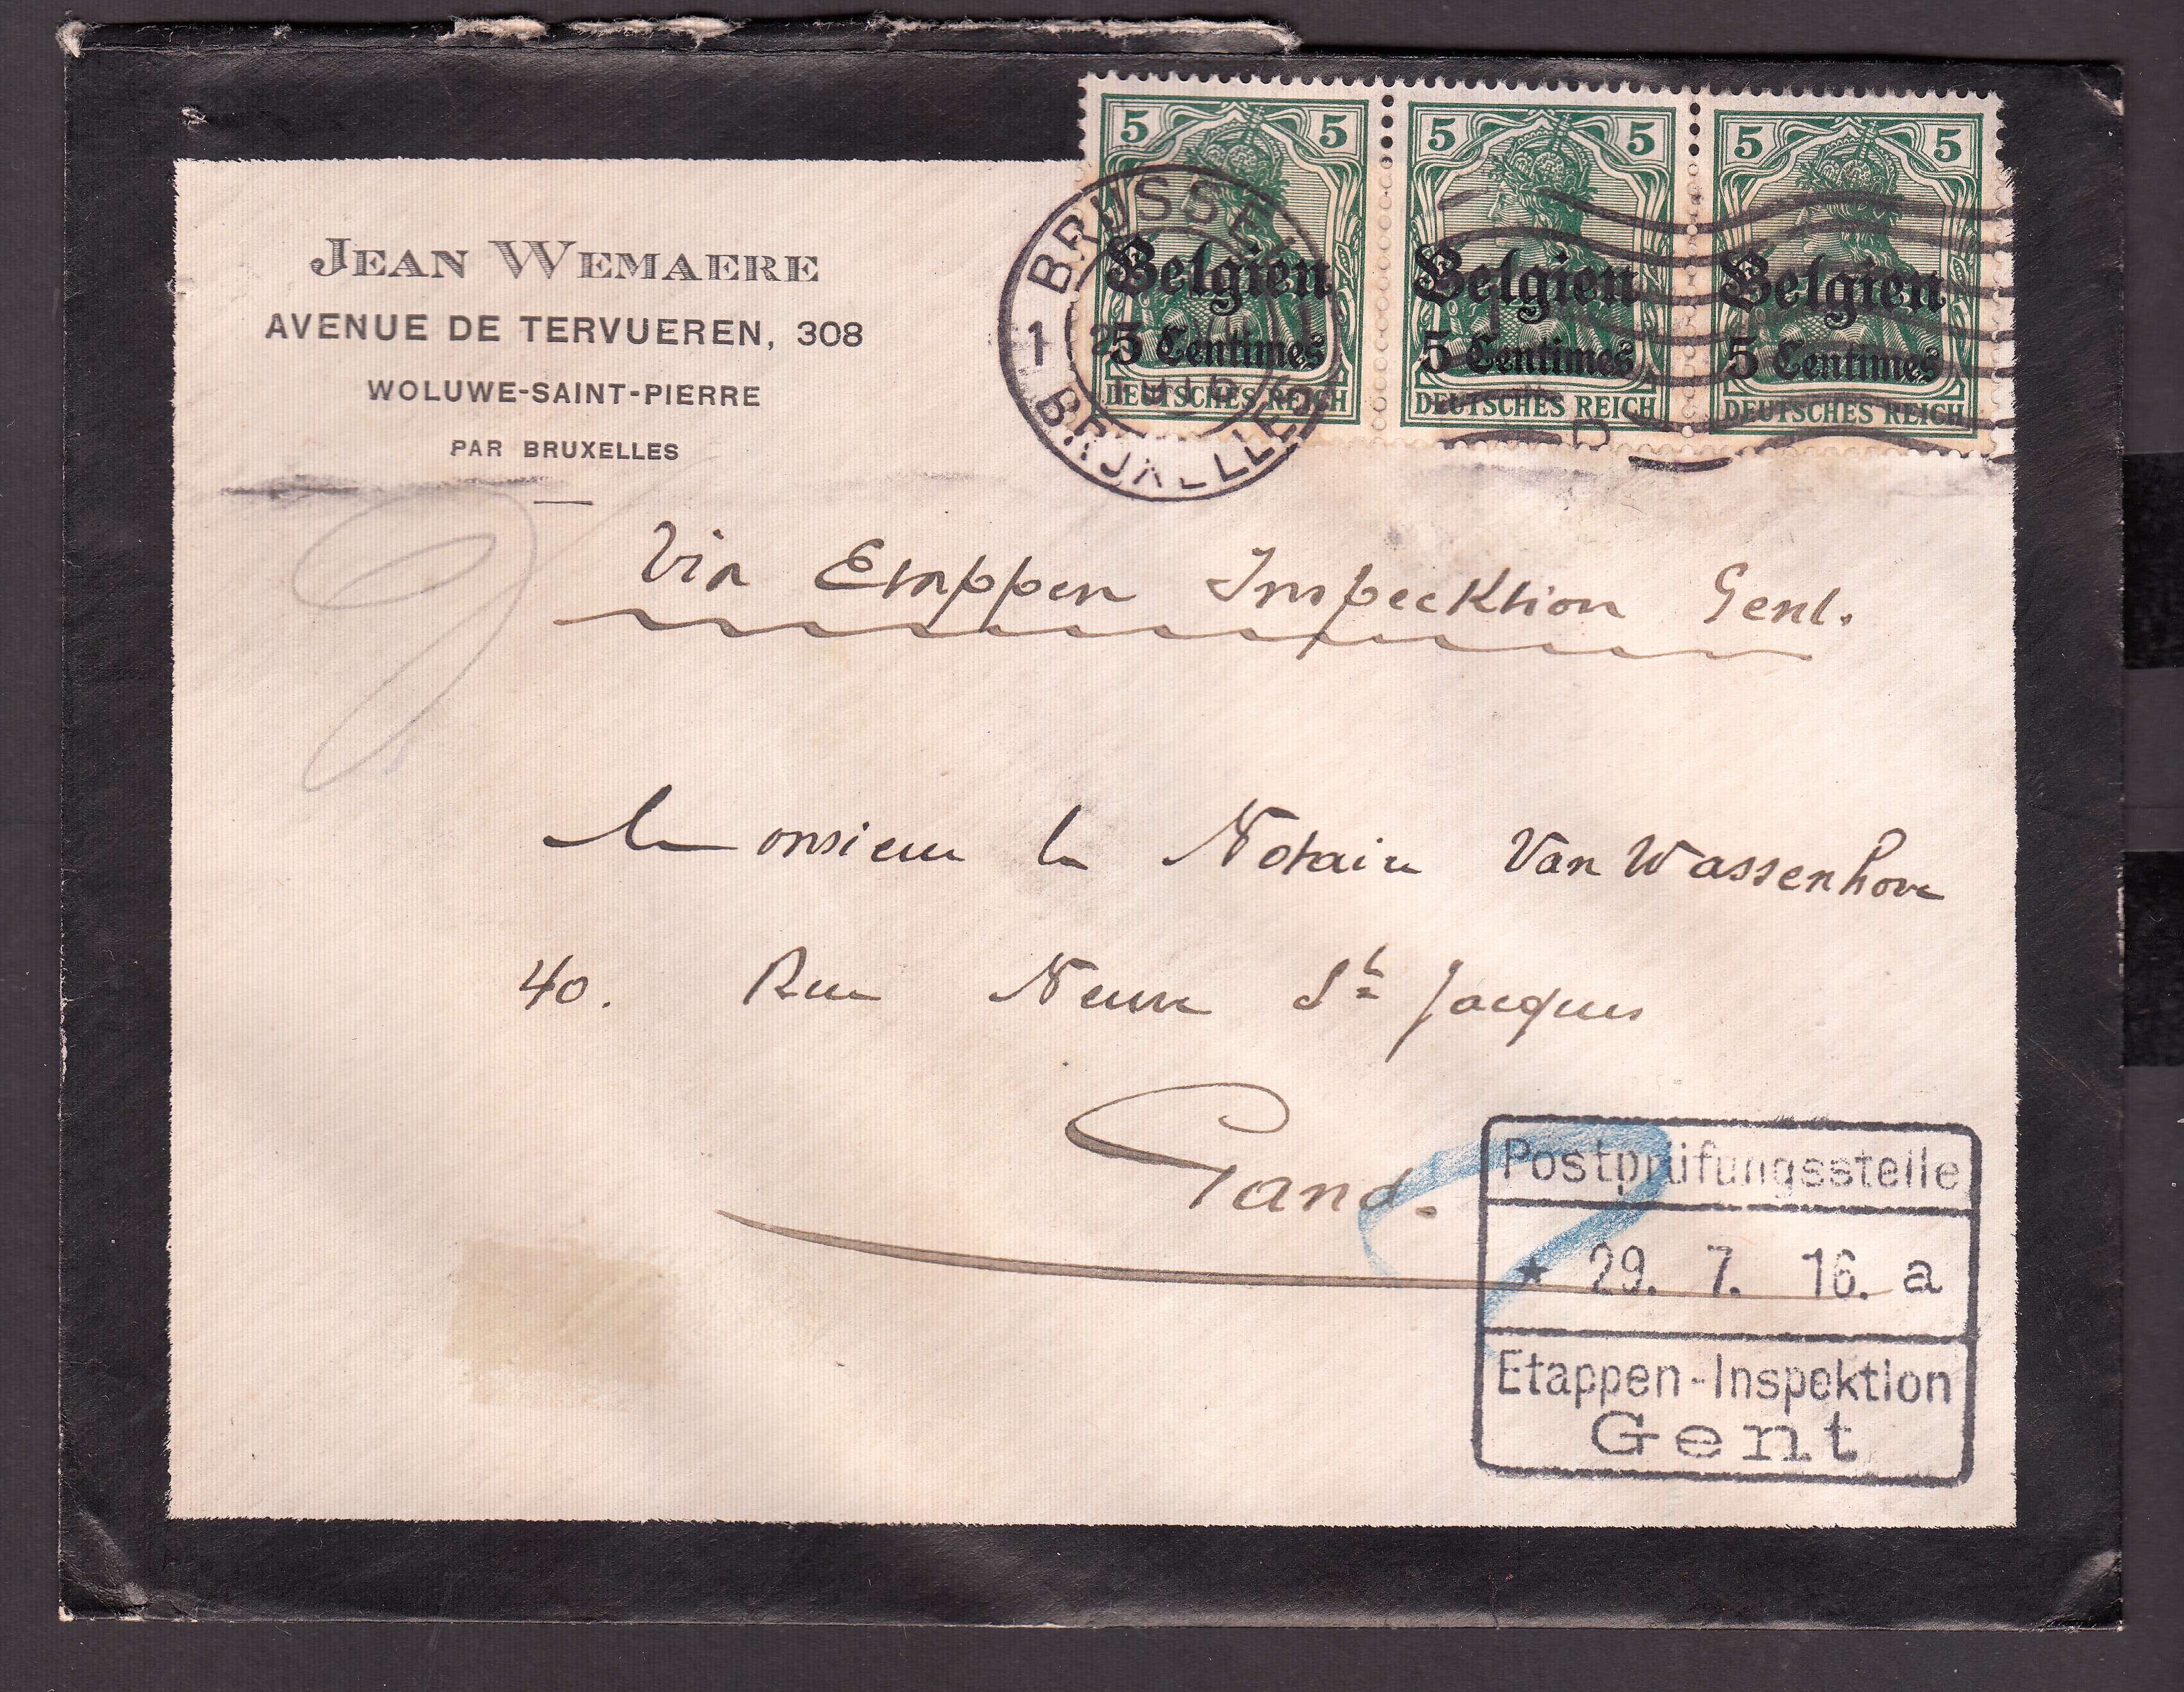 JEAN WEMAERE
AVENUE DE TERVUEREN, 308
WOLUWE-SAINT-PIERRE
PAR BRUXELLES
5 5
Belgien
5 Centimes
DEUTSCHES REICH
5 5
Belgien
5 Centimes
DEUTSCHES REICH
5 5
Belgien
5 Centimes
DEUTSCHES REICH
BRUSSEL
1
BRUXELLES
Via Etappen Inspecktion Gent.
Monsieur le Notaire Van Wassenhove
40. Rue Neuve St Jacques
Gand.
Postprüfungsstelle
★ 29. 7. 16. a
Etappen-Inspektion
Gent